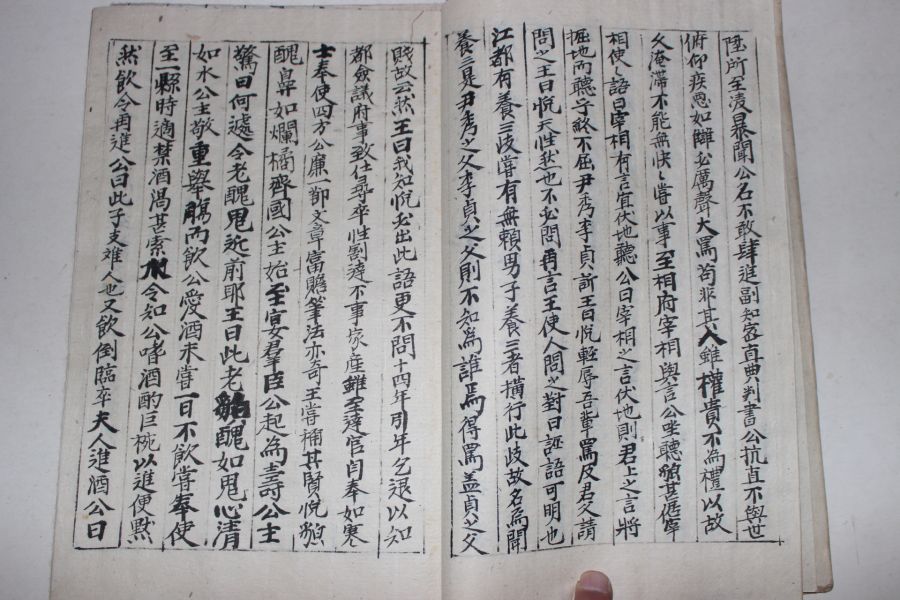 陞所至淩暴聞公名不敢肆進副知密直典判書公抗直不與世
俯仰疾惡如讎必厲聲大罵苟非其人雖權貴不為禮以故
久淹滯不能無怏〻嘗以事至相府宰相與言公坐聽貌甚倨宰
相使〻語曰宰相有言宜伏地聽公曰宰相之言伏地則君上之言將
掘地而聽乎終不屈尹秀李貞訴王曰悅輕辱吾輩罵及君父請
問之王曰悅天性然也不必問再言王使人問之對曰誣語可明也
江都有養三岐嘗有無賴男子養三者橫行此岐故名為聞
養三是尹秀之父李貞之父則不知為誰焉得罵盖貞之父
賤故云然王曰我知悅必出此語更不問十四年引年乞退以知
都僉議府事致仕尋卒性割達不事家産雖至達官自奉如寒
士奉使四方公廉一節文章富贍筆法亦奇王嘗稱其賢悅貌
醜鼻如爛橘齊國公主始至宴羣臣公起為壽公主
驚曰何遽令老醜鬼近前耶王曰此老貌醜如鬼心清
如水公主敬重舉觴而飲公愛酒未嘗一日不飲嘗奉使
至一縣時適禁酒渴甚索水令知公嗜酒酌巨椀以進便黙
然飲令再進公曰此子支难人也又飲倒臨卒夫人進酒公曰